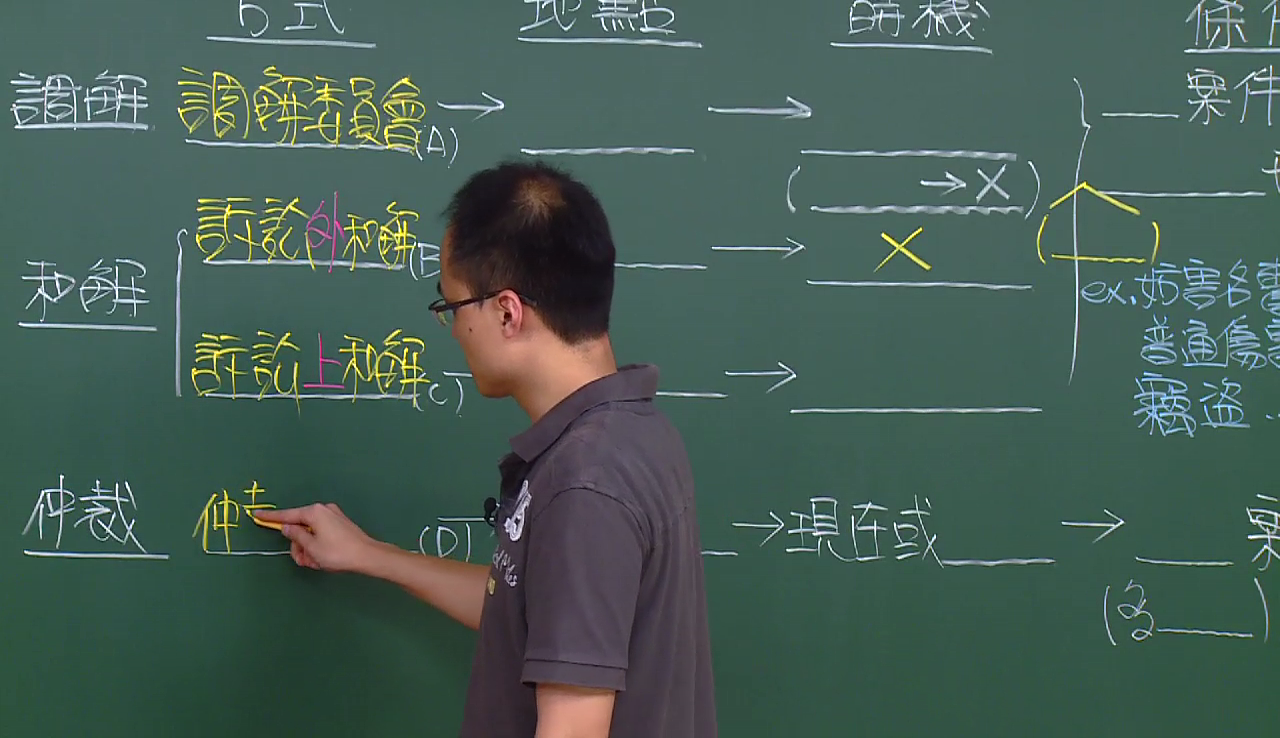 方式 地點 時機 條件
調解 調解委員會(A) → → 案件
( → X )
和解 訴訟外和解(B → X
ex.妨害名譽
訴訟上和解(C) → 普通傷害
竊盜
仲裁 仲 (D) → 現在或 →
(沒 )